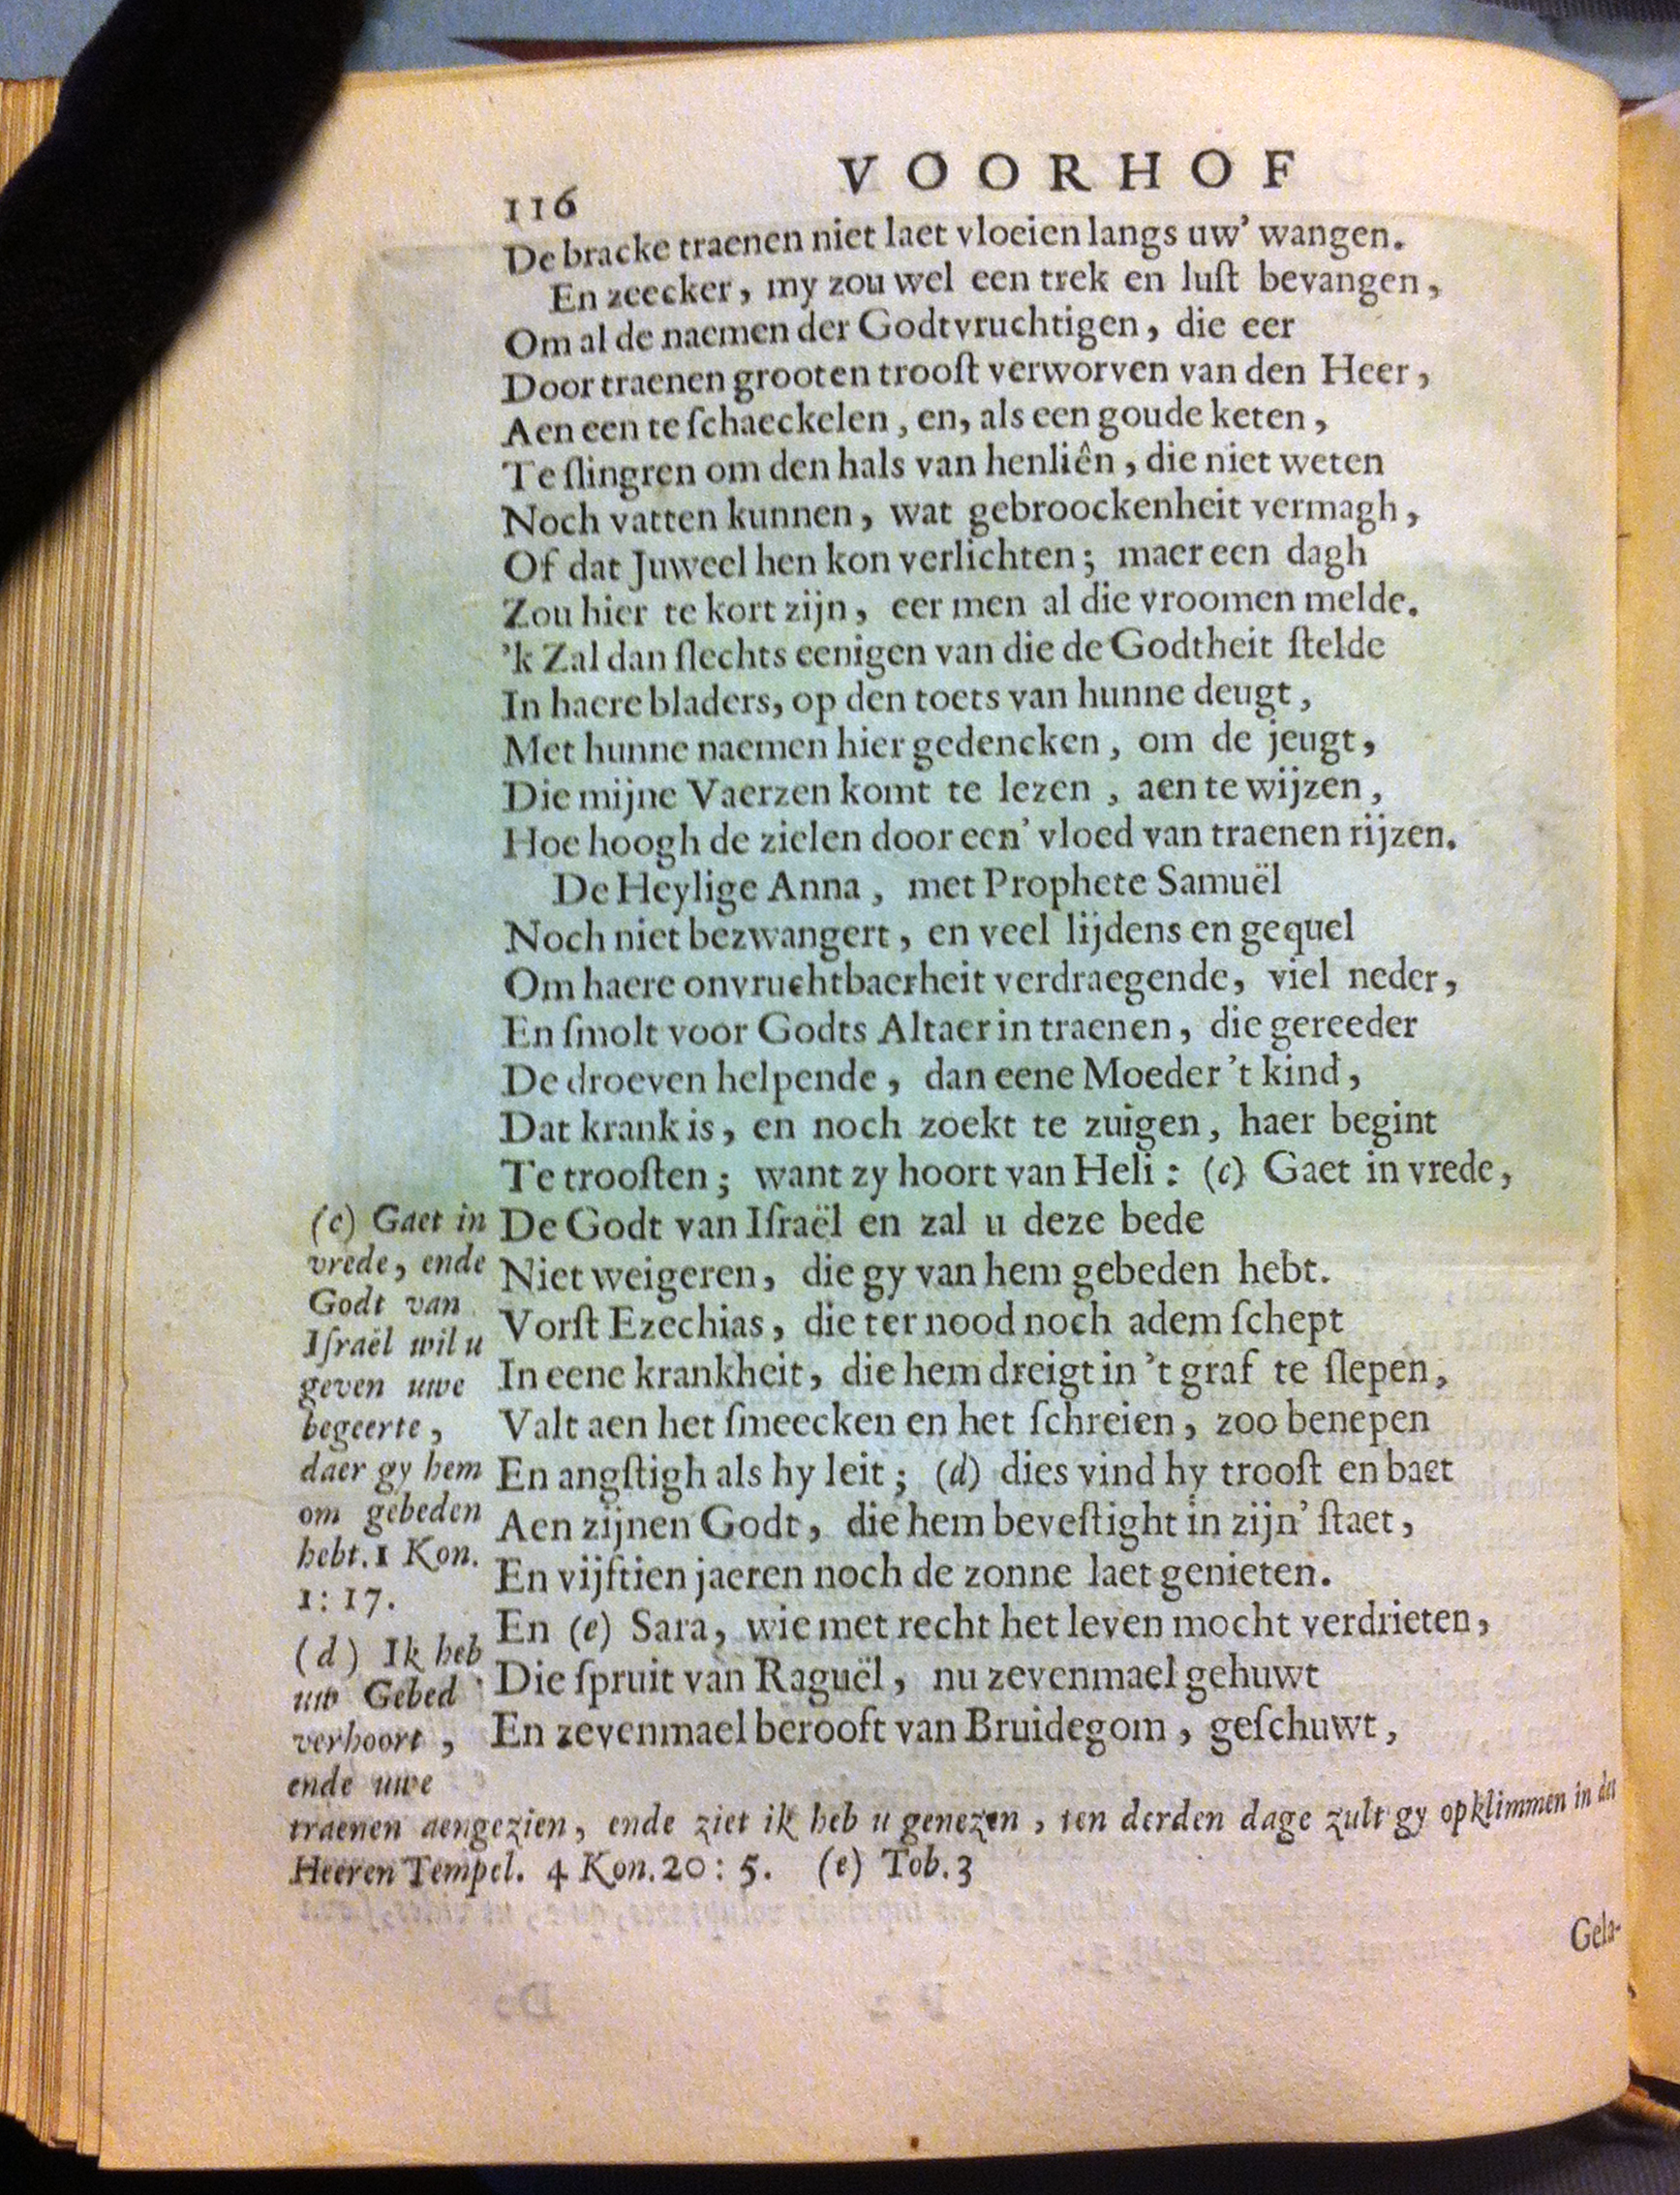 116
VOORHOF
De bracke traenen niet laet vloeien langs uw' wangen.
En zeecker, my zou wel een trek en luſt bevangen,
Om al de naemen der Godtvruchtigen, die eer
Door traenen grooten trooſt verworven van den Heer,
Aen een te ſchaeckelen, en, als een goude keten,
Te ſlingren om den hals van henliên, die niet weten
Noch vatten kunnen, wat gebroockenheit vermagh,
Of dat Juweel hen kon verlichten; maer een dagh
Zou hier te kort zijn, eer men al die vroomen melde.
'k Zal dan ſlechts eenigen van die de Godtheit ſtelde
In haere bladers, op den toets van hunne deugt,
Met hunne naemen hier gedencken, om de jeugt,
Die mijne Vaerzen komt te lezen, aen te wijzen,
Hoe hoogh de zielen door een' vloed van traenen rijzen.
De Heylige Anna, met Prophete Samuël
Noch niet bezwangert, en veel lijdens en gequel
Om haere onvruchtbaerheit verdraegende, viel neder,
En ſmolt voor Godts Altaer in traenen, die gereeder
De droeven helpende, dan eene Moeder 't kind,
Dat krank is, en noch zoekt te zuigen, haer begint
Te trooſten; want zy hoort van Heli: (c) Gaet in vrede,
De Godt van Iſraël en zal u deze bede
Niet weigeren, die gy van hem gebeden hebt.
Vorſt Ezechias, die ter nood noch adem ſchept
In eene krankheit, die hem dreigt in 't graf te ſlepen,
Valt aen het ſmeecken en het ſchreien, zoo benepen
En angſtigh als hy leit; (d) dies vind hy trooſt en baet
Aen zijnen Godt, die hem beveſtight in zijn' ſtaet,
En vijftien jaeren noch de zonne laet genieten.
En (e) Sara, wie met recht het leven mocht verdrieten,
Die ſpruit van Raguël, nu zevenmael gehuwt
En zevenmael berooft van Bruidegom, geſchuwt,
(c) Gaet in
vrede, ende
Godt van
Iſraël wil u
geven uwe
begeerte,
daer gy hem
om gebeden
hebt. 1 Kon.
1: 17.
(d) Ik heb
uw Gebed
verhoort,
ende uwe
traenen aengezien, ende ziet ik heb u genezen, ten derden dage zult gy opklimmen in des
Heeren Tempel. 4 Kon. 20: 5. (e) Tob. 3
Gela-